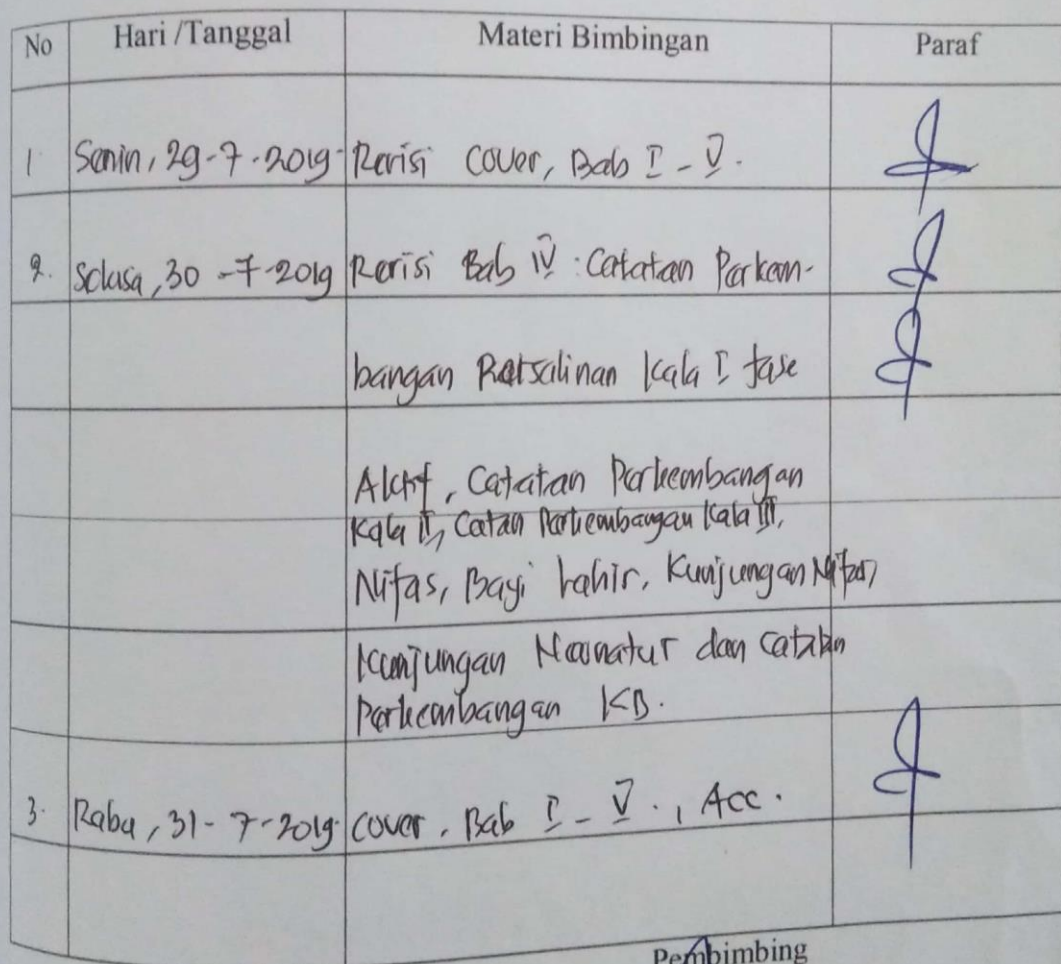 No Hari /Tanggal Materi Bimbingan Paraf
1 Senin, 29-7-2019 Revisi cover, Bab I - V.
2. Selasa, 30-7-2019 Revisi Bab IV : Catatan Perkem-
bangan Persalinan Kala I fase
Aktif, Catatan Perkembangan
Kala II, Catan Perkembangan Kala III,
Nifas, Bayi Lahir, Kunjungan Nifas,
Kunjungan Neonatus dan Catatan
Perkembangan KB.
3. Rabu, 31-7-2019 cover, Bab I - V., Acc.
Pembimbing